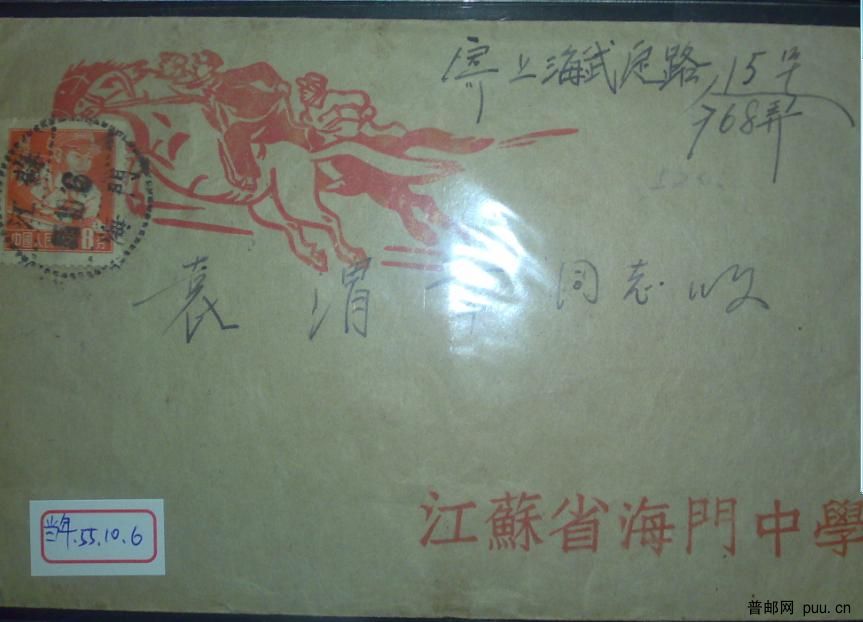 寄上海武定路
15号
768弄
江蘇
10.6
海門
中國人民
8分
袁渭 同志收
江蘇省海門中學
当年.55.10.6
普邮网 puu.cn